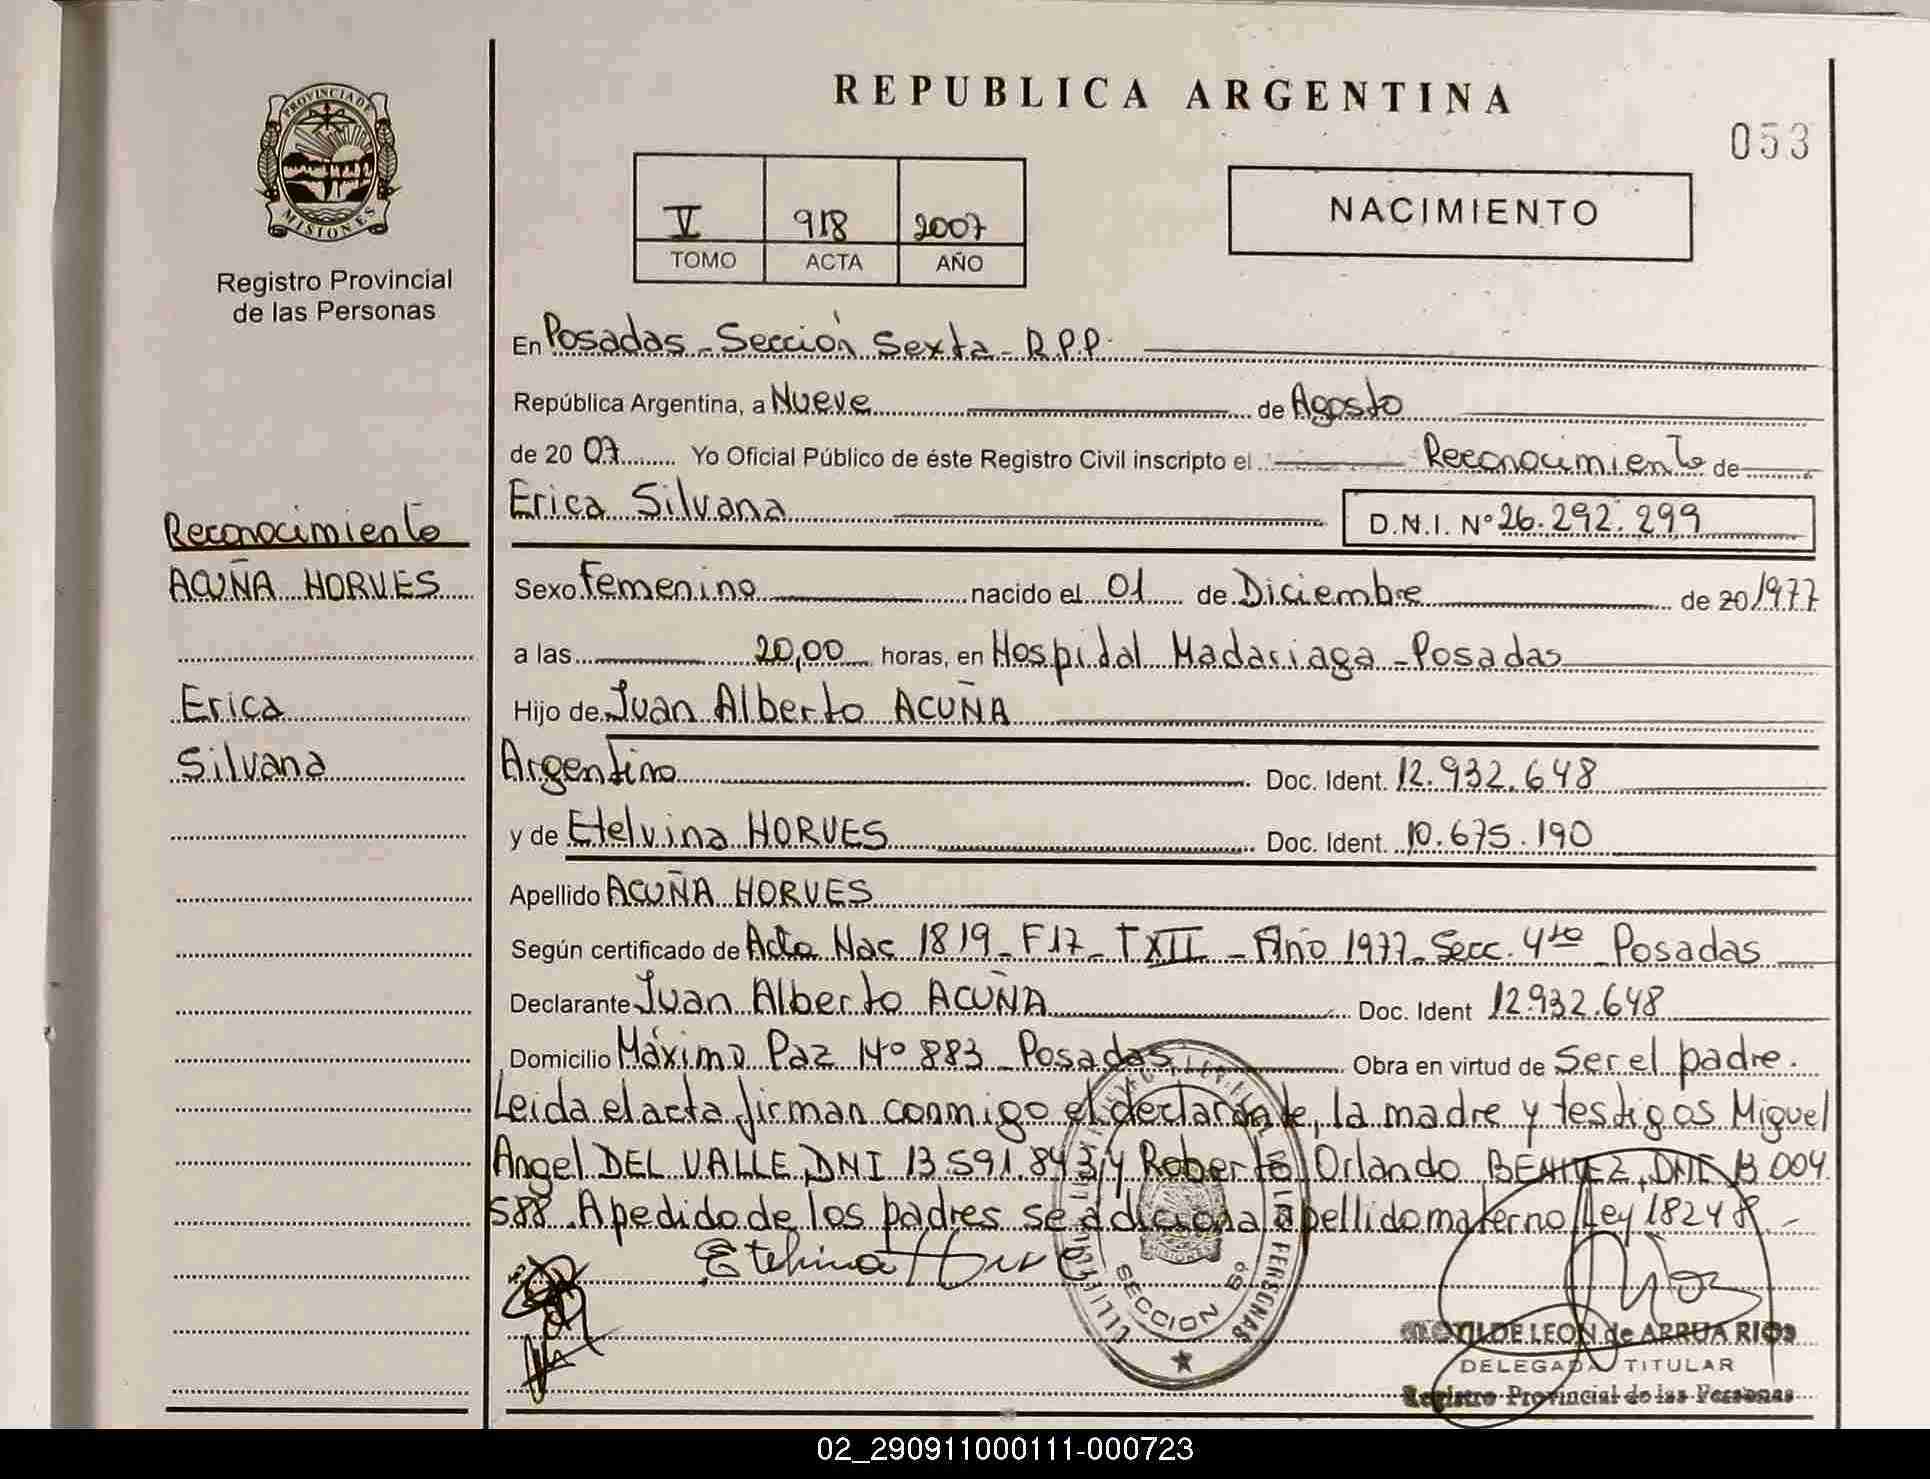 REPUBLICA ARGENTINA
053
PROVINCIA DE
MISIONES
Registro Provincial
de las Personas
V 918 2007
TOMO ACTA AÑO
NACIMIENTO
En Posadas - Sección Sexta - R.P.P.
República Argentina, a Nueve de Agosto
de 20 07 Yo Oficial Público de éste Registro Civil inscripto el Reconocimiento de
Erica Silvana D.N.I. N° 26.292.299
Reconocimiento
ACUÑA HORVES
Erica
Silvana
Sexo Femenino nacido el 01 de Diciembre de 20 1977
a las 20,00 horas, en Hospital Madariaga - Posadas
Hijo de Juan Alberto ACUÑA
Argentino Doc. Ident. 12.932.648
y de Etelvina HORVES Doc. Ident. 10.675.190
Apellido ACUÑA HORVES
Según certificado de Acta Nac 1819 - F17 - TXII - Año 1977 - Secc. 4to Posadas
Declarante Juan Alberto ACUÑA Doc. Ident 12.932.648
Domicilio Máximo Paz N° 883 - Posadas Obra en virtud de Ser el padre.
Leida el acta firman conmigo el declarante, la madre y testigos Miguel
Angel DEL VALLE, DNI 13.591.843, y Roberto Orlando BENITEZ, DNI 13.004.
588. A pedido de los padres se adiciona apellido materno Ley 18248.-
Etelvina Horves
SECCION 6°
DE LAS PERSONAS
TILDE LEON de ARRUA RIOS
DELEGADA TITULAR
Registro Provincial de las Personas
02_290911000111-000723